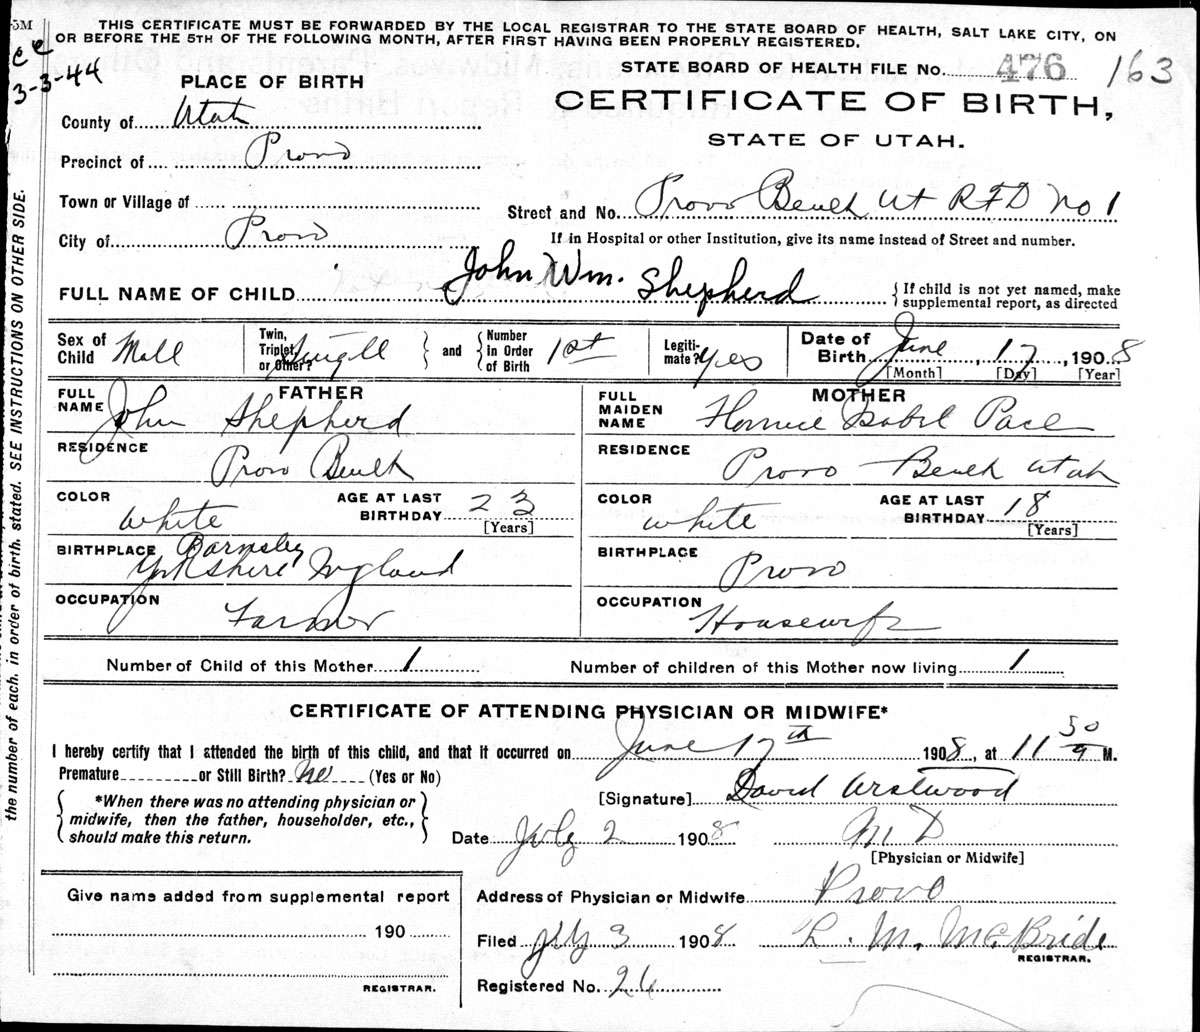 THIS CERTIFICATE MUST BE FORWARDED BY THE LOCAL REGISTRAR TO THE STATE BOARD OF HEALTH, SALT LAKE CITY, ON
OR BEFORE THE 5TH OF THE FOLLOWING MONTH, AFTER FIRST HAVING BEEN PROPERLY REGISTERED.
3-3-44
STATE BOARD OF HEALTH FILE No. 476 163
PLACE OF BIRTH
CERTIFICATE OF BIRTH,
STATE OF UTAH.
County of Utah
Precinct of Provo
Town or Village of
Street and No. Provo Bench Ut RFD No 1
City of Provo
If in Hospital or other Institution, give its name instead of Street and number.
FULL NAME OF CHILD John Wm. Shepherd
{If child is not yet named, make
supplemental report, as directed
Sex of Child Male
Twin, Triplet or Other? Single
and Number in Order of Birth 1st
Legiti-mate? Yes
Date of Birth June, 17, 1908
[Month] [Day] [Year]
FATHER
FULL NAME John Shepherd
MOTHER
FULL MAIDEN NAME Isabel Pace
RESIDENCE Provo Bench
RESIDENCE Provo Bench Utah
COLOR white
AGE AT LAST BIRTHDAY 23
[Years]
COLOR white
AGE AT LAST BIRTHDAY 18
[Years]
BIRTHPLACE Barnsley
Yorkshire England
BIRTHPLACE Provo
OCCUPATION Farmer
OCCUPATION Housewife
Number of Child of this Mother 1
Number of children of this Mother now living 1
CERTIFICATE OF ATTENDING PHYSICIAN OR MIDWIFE*
I hereby certify that I attended the birth of this child, and that it occurred on June 17th 1908, at 11 50 a M.
Premature or Still Birth? No (Yes or No)
*When there was no attending physician or
midwife, then the father, householder, etc.,
should make this return.
[Signature] David Westwood
Date July 2 1908 M D
[Physician or Midwife]
Give name added from supplemental report
190
REGISTRAR.
Address of Physician or Midwife Provo
Filed July 3 1908 L. M. McBride
REGISTRAR.
Registered No. 26
the number of each, in order of birth, stated. SEE INSTRUCTIONS ON OTHER SIDE.